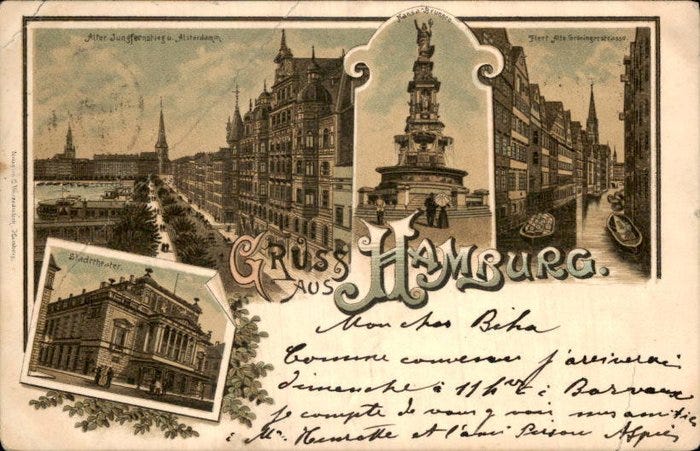 Alter Jungfernstieg u. Alsterdamm.
Hansa-Brunnen
Fleet Alte Gröningerstrasse.
Stadttheater.
GRUSS
AUS
HAMBURG.
Mon cher Biha
Comme convenu j'arriverai
dimanche à 11 h à Barvaux
je compte de vous y voir mes amitiés
à Me Henrette et l'ami Pierson